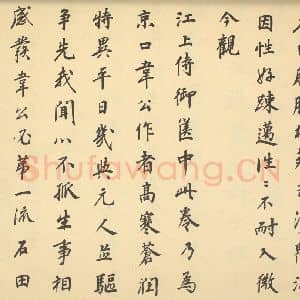 因性好踈邁往〻不耐入微
今觀
江上侍御篋中此卷乃為
京口韋公作者高寒蒼潤
特異平日幾與元人並驅
争先我聞以不孤生事相
感發韋公必第一流石田
Shufawang.CN